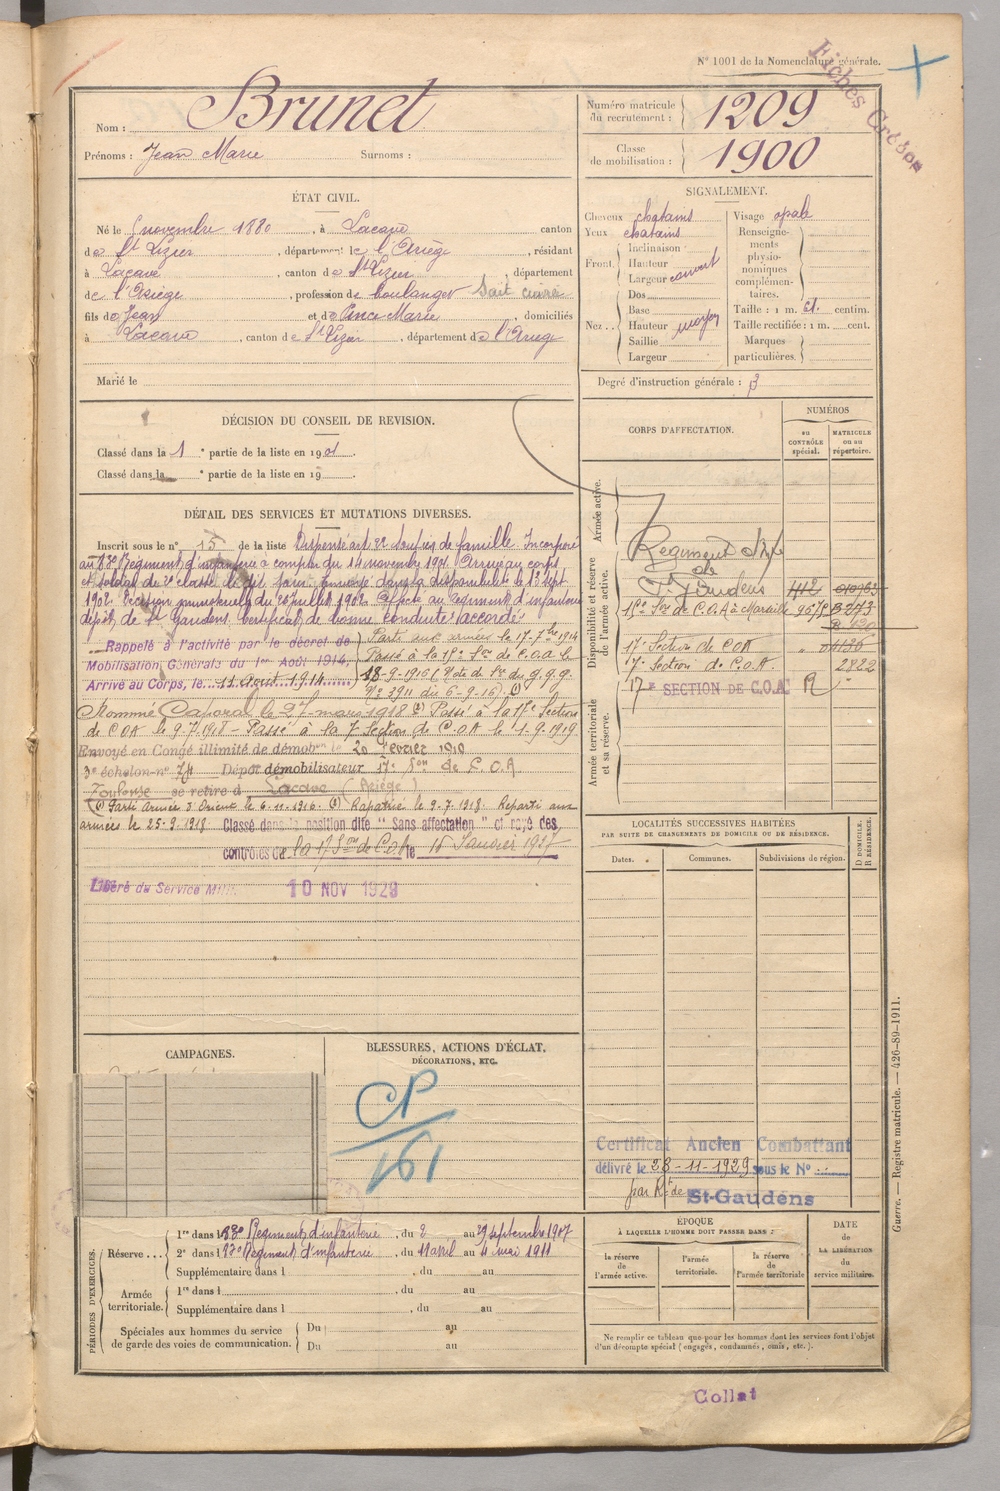 N° 1001 de la Nomenclature générale.
Fiches
Nom : Brunet
Prénoms : Jean Marie Surnoms :
Numéro matricule du recrutement : 1209
Classe de mobilisation : 1900
ÉTAT CIVIL.
Né le novembre 1880, à Lacave canton
de St Lizier, département de l'Ariège, résidant
à Lacave, canton de St Lizier, département
de l'Ariège, profession de boulanger Sait cuire
fils de Jean et de Ance Marie, domiciliés
à Lacave, canton de St Lizier, département de l'Ariège
Marié le
SIGNALEMENT.
Cheveux chatains
Yeux chatains
Front.
Inclinaison
Hauteur
Largeur couvert
Nez..
Dos
Base
Hauteur moyen
Saillie
Largeur
Visage opale
Renseignements physionomiques complémentaires.
Taille : 1 m. 61. centim.
Taille rectifiée : 1 m. cent.
Marques particulières.
Degré d'instruction générale : 3
DÉCISION DU CONSEIL DE REVISION.
Classé dans la 1e partie de la liste en 1901.
Classé dans la e partie de la liste en 19 .
DÉTAIL DES SERVICES ET MUTATIONS DIVERSES.
Inscrit sous le n° 15 de la liste Dispensé art. 22 soutien de famille. Incorporé
au 83e Régiment d'infanterie à compter du 14 novembre 1901. Arrivé au corps
et soldat de 2e classe le dit jour. Envoyé dans la disponibilité le 13 sept
1902. Décision ministérielle du 26 juillet 1902. Affecté au régiment d'infanterie
dépôt de St Gaudens. Certificat de bonne conduite accordé
Rappelé à l'activité par le décret de
Mobilisation Générale du 1er Août 1914,
Arrivé au Corps, le 11 Août 1914
Parti aux armées le 17-7bre 1914
Passé à la 17e Son de C.O.A le
18-9-1916 (Note de Sce du G.Q.G.
N° 3911 du 6-9-16) (1)
Nommé Caporal le 27 mars 1918 (2) Passé à la 17e Section
de COA le 9.7.1918 - Passé à la 7 Section de C.O.A le 1.9.1919
Envoyé en Congé illimité de démobon le 20 février 1919
3e échelon n° 74 Dépôt démobilisateur 17e Son de C.O.A
Toulouse se retire à Lacave (Ariège)
(1) Parti Armée d'Orient le 6.11.1916. (2) Rapatrié le 9.7.1918. Reparti aux
armées le 25.9.1918 Classé dans la position dite "Sans affectation" et rayé des
contrôles de la 17 Son de C.O.A le 15 Janvier 1927
Libéré du Service Milit. 10 NOV 1929
CORPS D'AFFECTATION.
NUMÉROS
au CONTRÔLE spécial.
MATRICULE ou au répertoire.
Armée active.
Disponibilité et réserve de l'armée active.
Régiment d'Inf
de
St Gaudens 412
15e Son de C.O.A à Marseille
17e Section de COA
7e Section de C.O.A. 2822
17e SECTION DE C.O.A. R
Armée territoriale et sa réserve.
LOCALITÉS SUCCESSIVES HABITÉES
PAR SUITE DE CHANGEMENTS DE DOMICILE OU DE RÉSIDENCE.
Dates. Communes. Subdivisions de région.
D DOMICILE. R RÉSIDENCE.
CAMPAGNES.
BLESSURES, ACTIONS D'ÉCLAT,
DÉCORATIONS, ETC.
CP/161
Certificat Ancien Combattant
délivré le 28-11-1929 sous le N°
par Rt de St-Gaudens
PÉRIODES D'EXERCICES.
Réserve...
1re dans l 83e Régiment d'infanterie, du 2 au 29 septembre 1907
2e dans l Régiment d'infanterie, du 11 avril au 4 mai 1911
Supplémentaire dans l , du au
Armée territoriale.
1re dans l , du au
Supplémentaire dans l , du au
Spéciales aux hommes du service de garde des voies de communication.
Du au
Du au
ÉPOQUE
À LAQUELLE L'HOMME DOIT PASSER DANS :
la réserve de l'armée active.
l'armée territoriale.
la réserve de l'armée territoriale
DATE DE LA LIBÉRATION du service militaire.
Ne remplir ce tableau que pour les hommes dont les services font l'objet
d'un décompte spécial (engagés, condamnés, omis, etc.).
Guerre. — Registre matricule. — 426-89-1911.
Collat